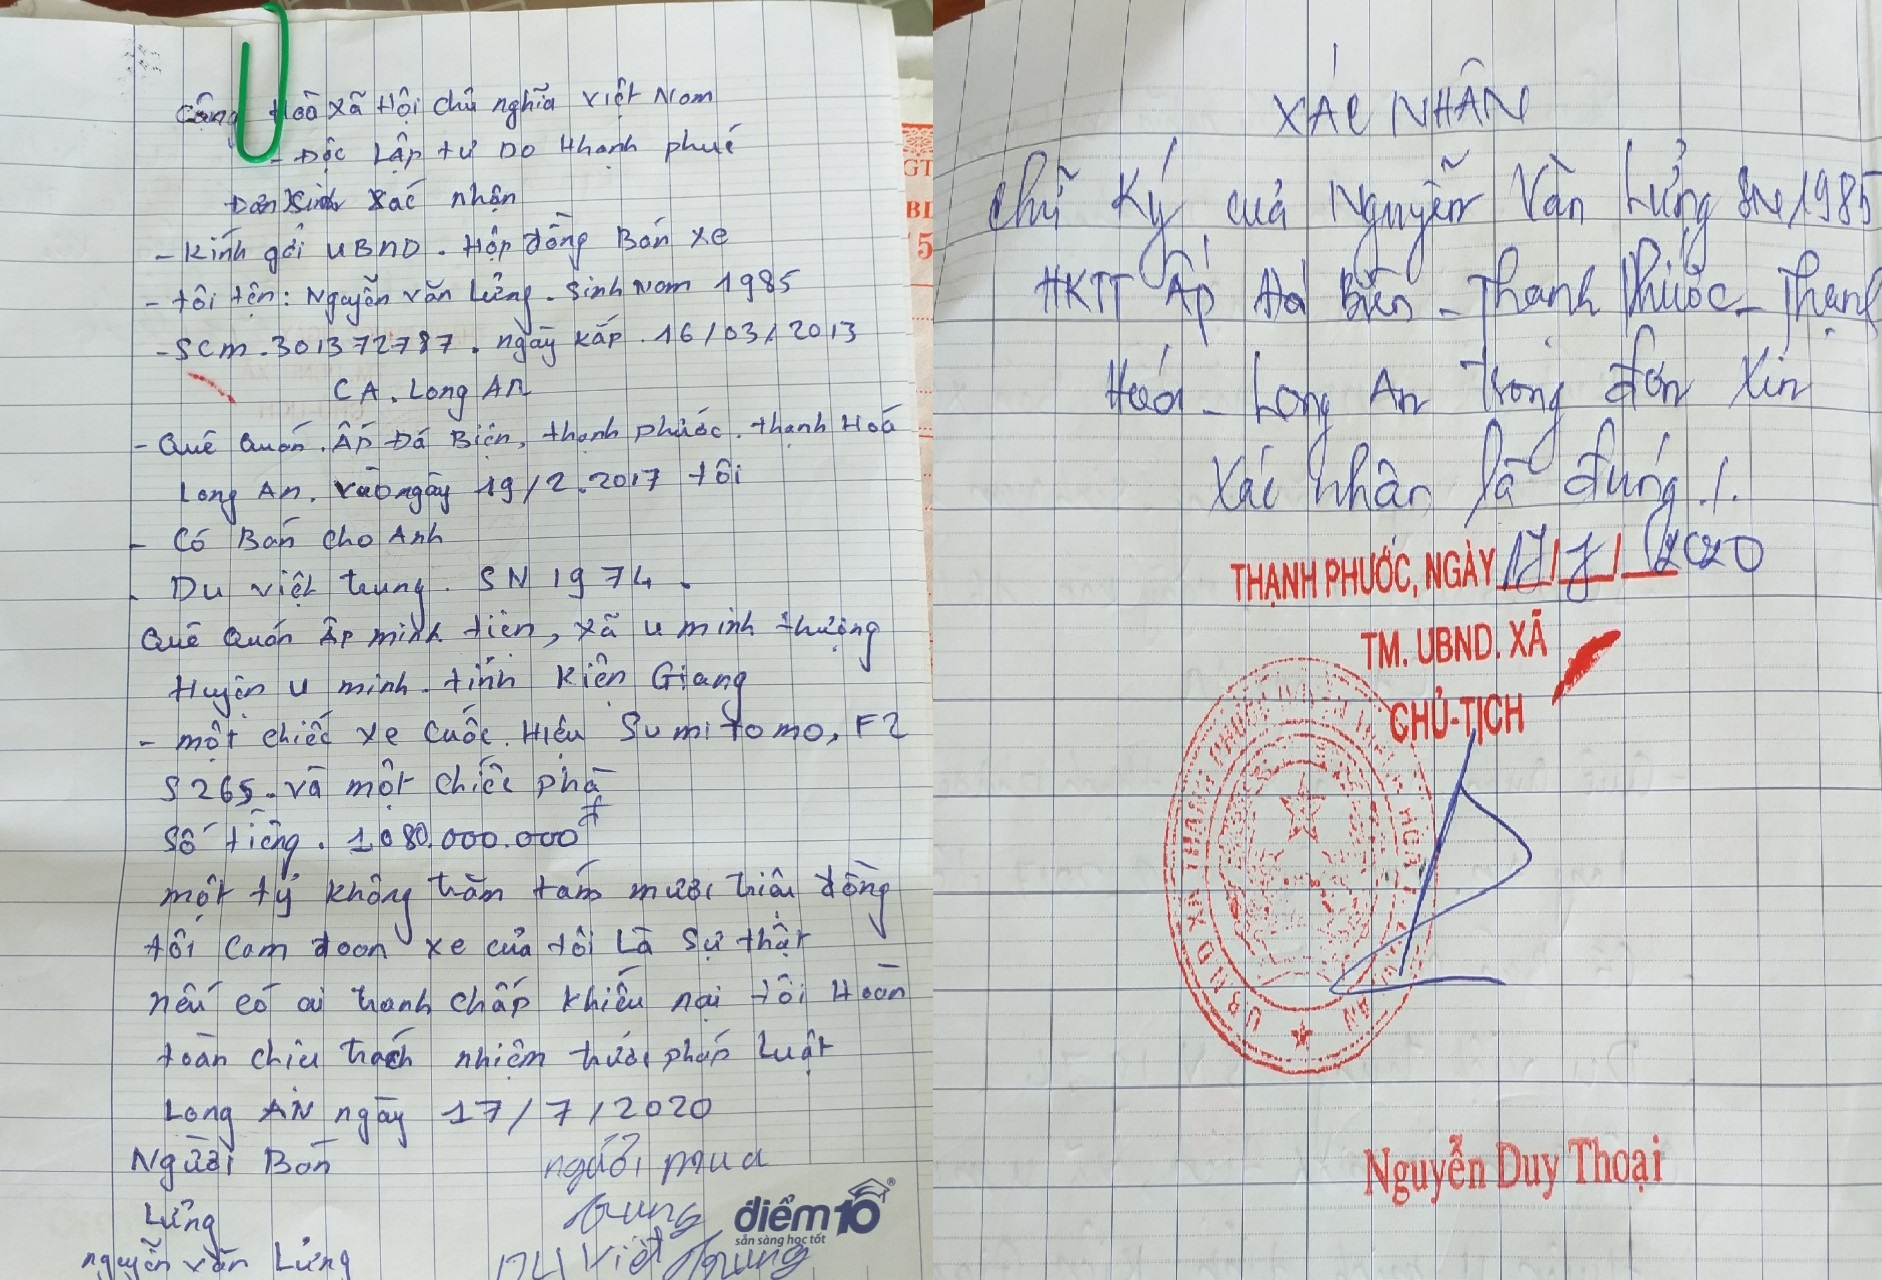 Cộng Hoà xã Hội chủ nghĩa việt Nam
- Độc Lập tự Do Hhạnh phuć
Đơn Xinh Xác nhận
- Kính gởi UBND. Hộp đồng Bán xe
- tôi tên: Nguyễn văn Lửng. Sinh Nam 1985
- SCM. 301372787. ngày kấp. 16/03/2013
CA. Long AN
- Quê Quán. Ấp Đá Biên, thạnh phước. thạnh Hoá
Long An. vào ngày 19/2.2017 tôi
- Có Bán cho Anh
- Du việt trung. SN 1974.
Quê Quán Ấp minh tiên, xã u minh thượng
Huyện u minh. tỉnh Kiên Giang
- một chiếc xe Cuốc. Hiệu Sumitomo, F2
S265. và một chiếc phà
Số tiêng. 1080.000.000đ
một tỷ không trăm tám mươi triêu đồng
tôi Cam đoan xe của tôi Là Sự thật
nếu có ai tranh chấp khiếu nại tôi Hoàn
toàn chiu trách nhiệm trước pháp Luật
Long AN ngày 17/7/2020
Người Bán người mua
Lửng Trung
nguyễn văn Lửng DU Việt Trung
điểm10
sẵn sàng học tốt
XÁC NHẬN
chữ Ký cuả Nguyễn Văn Lửng 1985
HKTT Ấp Đá Biên - Thạnh Phước - Thạnh
Hoá - Long An trong đơn xin
xác nhận là đúng ./.
THẠNH PHƯỚC, NGÀY 17/7/2020
TM. UBND. XÃ
CHỦ-TỊCH
Nguyễn Duy Thoại